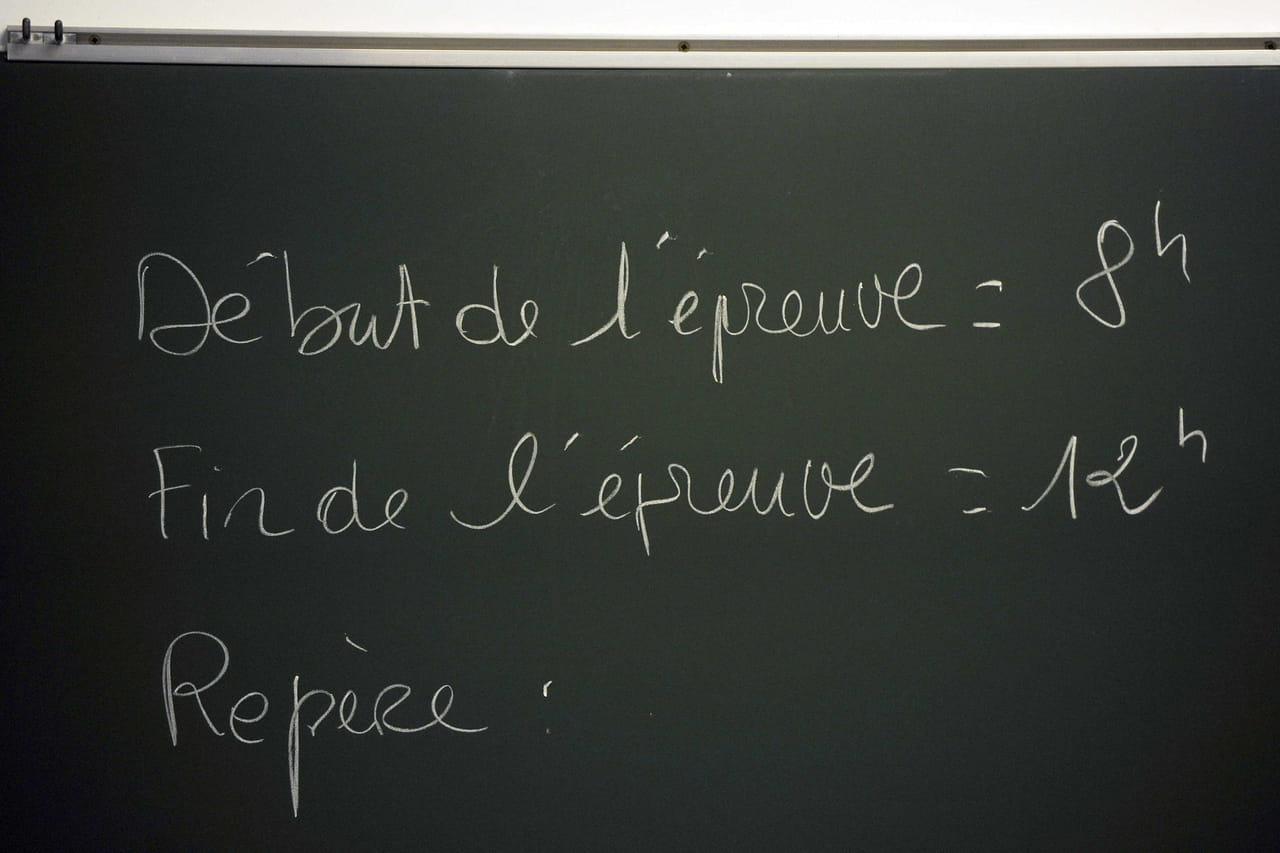 Début de l'épreuve = 8h
Fin de l'épreuve = 12h
Repère :